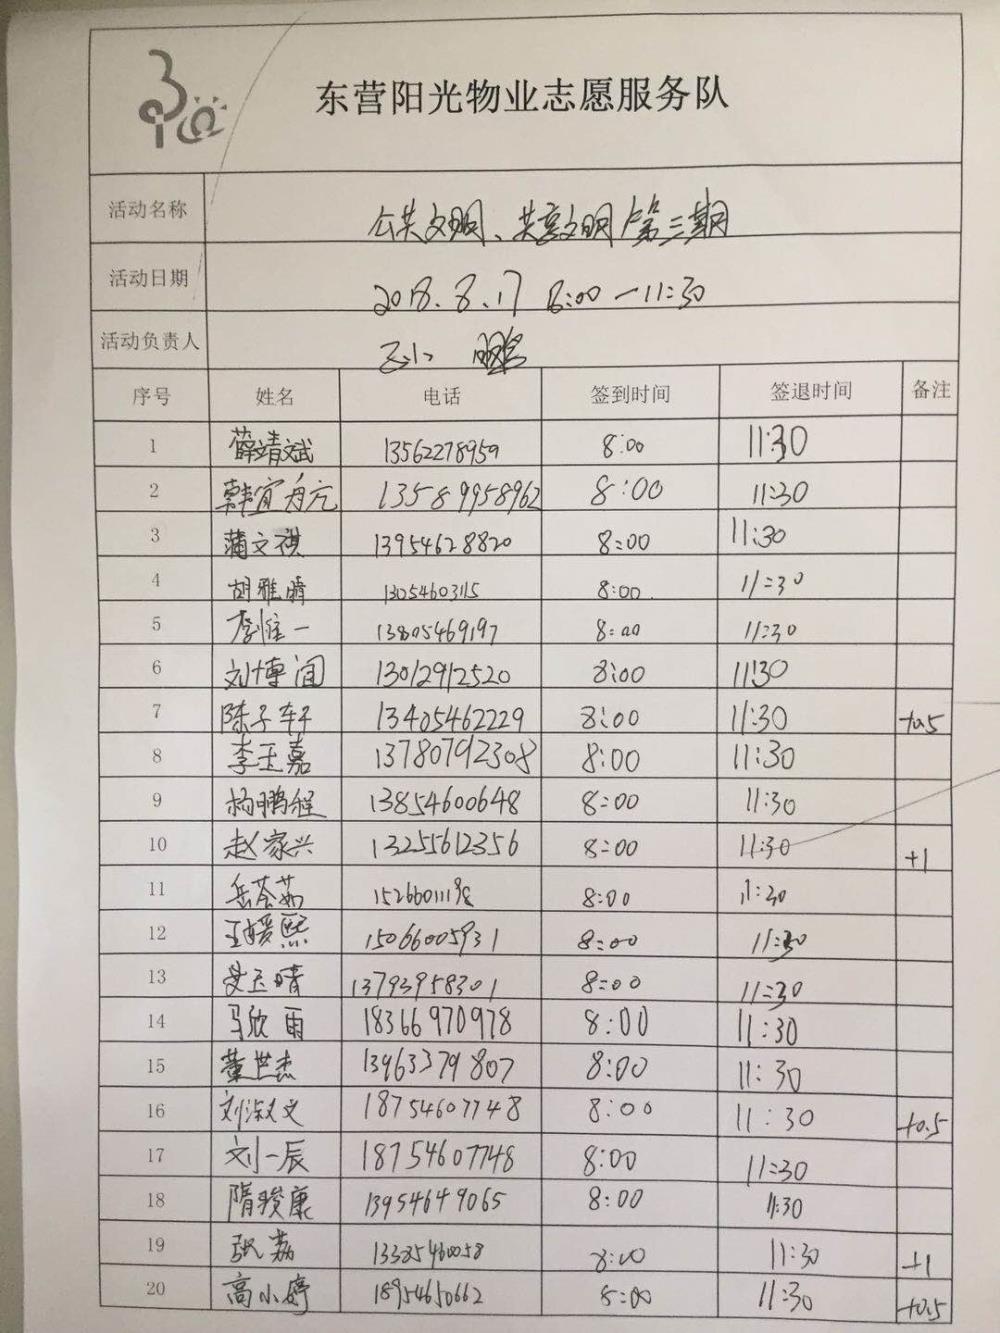 东营阳光物业志愿服务队
活动名称 公共文明、共享文明 第三期
活动日期 2018.8.17 8:00-11:30
活动负责人
序号 姓名 电话 签到时间 签退时间 备注
1 薛靖斌 13562278959 8:00 11:30
2 韩宜舟元 13589958962 8:00 11:30
3 蒲文祺 13954628820 8:00 11:30
4 胡雅晴 13054603115 8:00 11:30
5 李惟一 13805469197 8:00 11:30
6 刘博闻 13012912520 8:00 11:30
7 陈子轩 13405462229 8:00 11:30 +0.5
8 李玉嘉 13780792308 8:00 11:30
9 杨鹏程 13854600648 8:00 11:30
10 赵家兴 13255612356 8:00 11:30 +1
11 岳荟茹 8:00 11:30
12 王媛熙 15066005931 8:00 11:30
13 13793958301 8:00 11:30
14 马欣雨 18366970978 8:00 11:30
15 董世杰 13963379807 8:00 11:30
16 刘淑文 18754607748 8:00 11:30 +0.5
17 刘一辰 18754607748 8:00 11:30
18 隋骏康 13954649065 8:00 11:30
19 张荔 13385460058 8:00 11:30 +1
20 高小婷 18954650662 8:00 11:30 +0.5